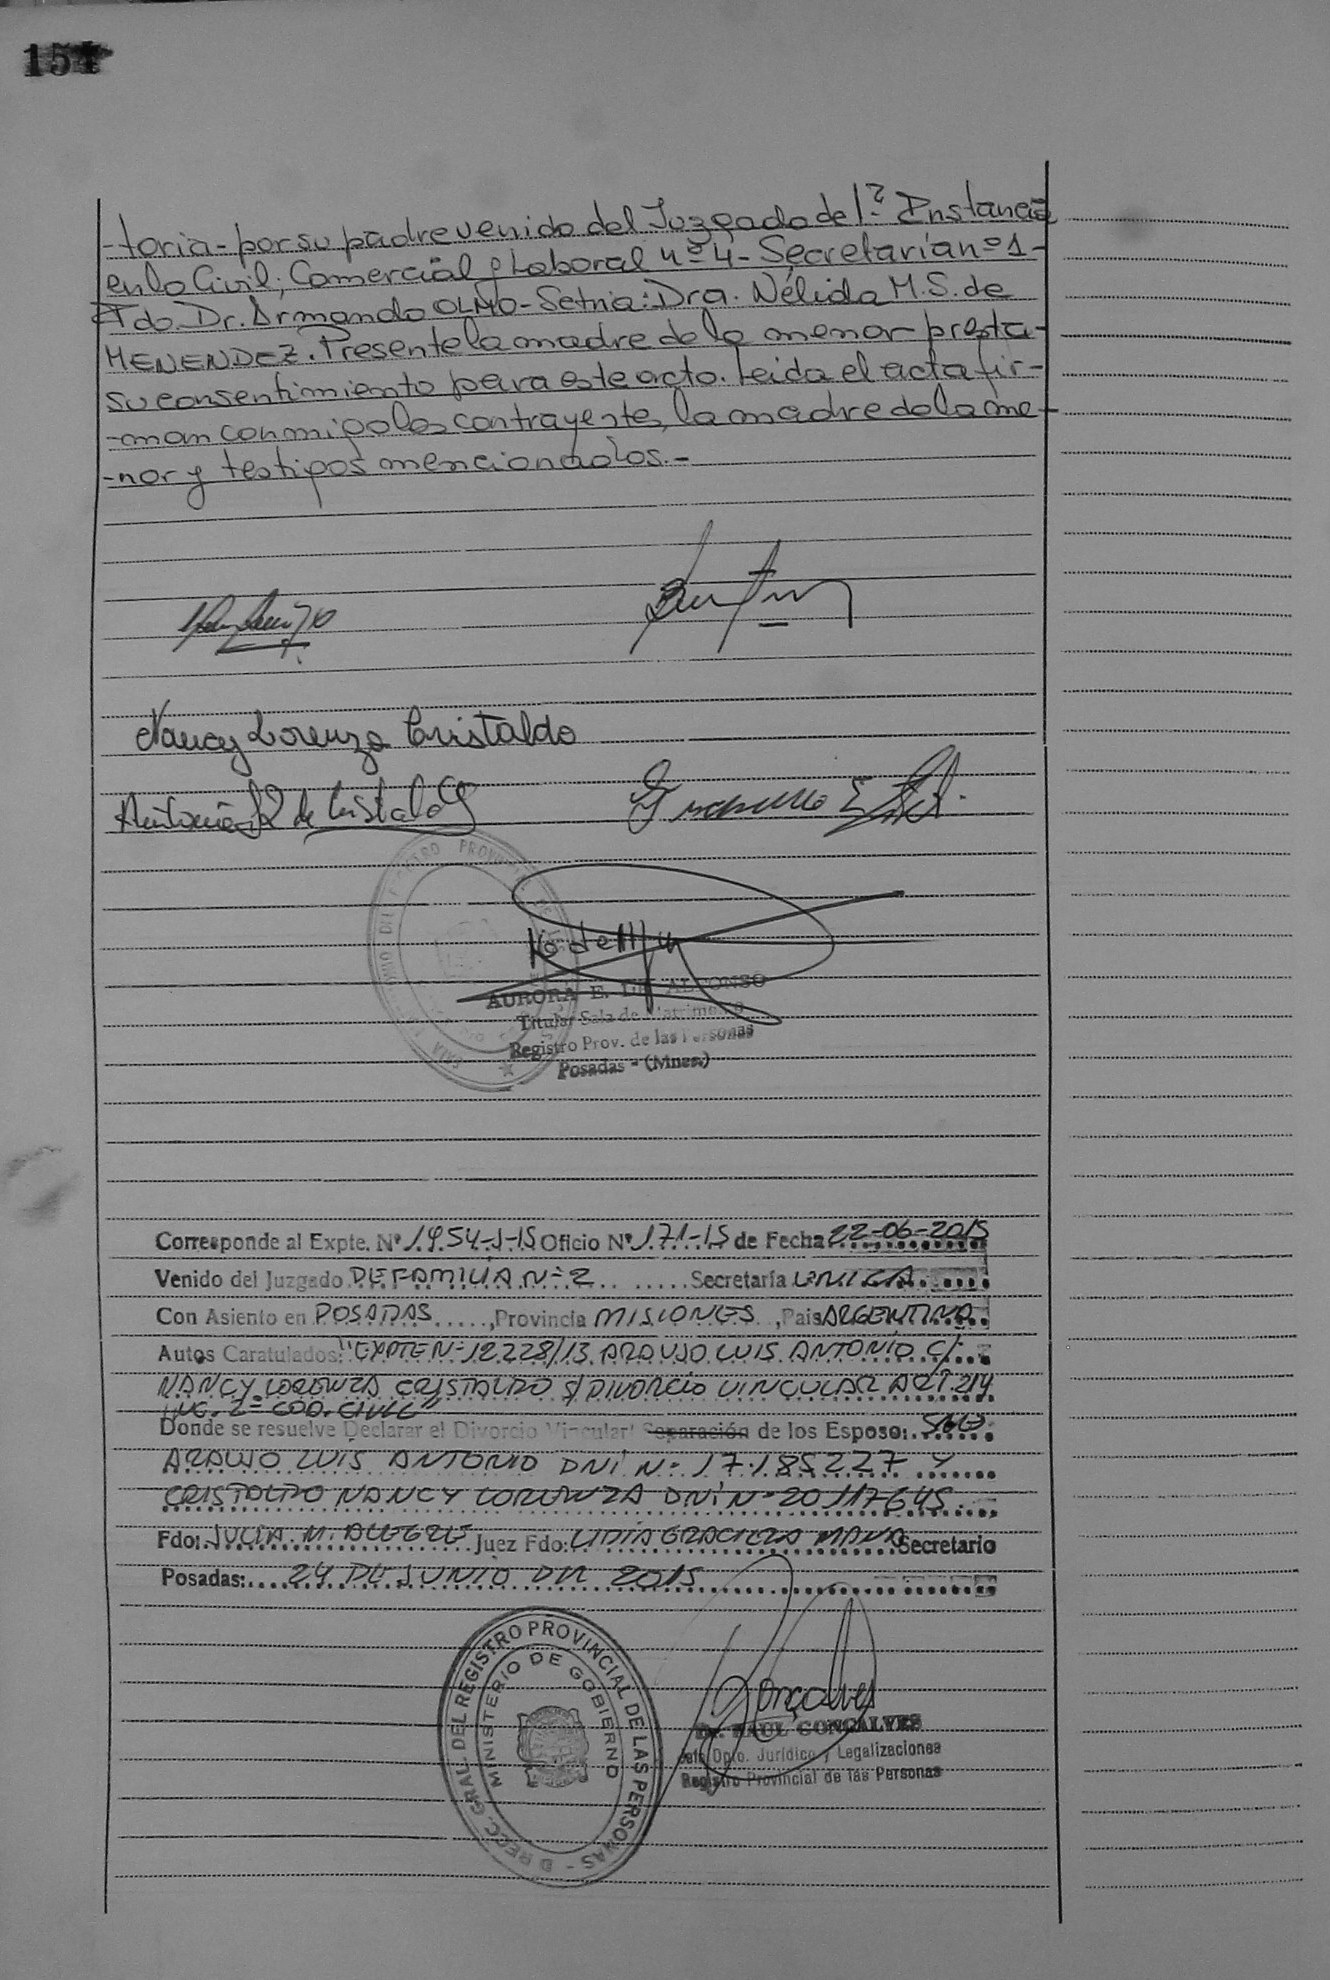 151
-toria- por su padre venido del Juzgado de 1ª Instancia
en lo Civil, Comercial y Laboral nº 4- Secretaría nº 1-
Fdo. Dr. Armando OLMO- Setria: Dra. Nélida M.S. de
MENENDEZ. Presente la madre de la menor presta-
su consentimiento para este acto. Leida el acta fir-
-man conmigo los contrayentes, la madre de la me-
-nor y testigos mencionados.-
Nancy Lorenza Cristaldo
Antonia de Cristaldo
AURORA E. DE ALFONSO
Titular Sala de Matrimonio
Registro Prov. de las Personas
Posadas - (Mnes.)
Corresponde al Expte. Nº 1954-J-15 Oficio Nº 171-15 de Fecha 22-06-2015
Venido del Juzgado DE FAMILIA Nº 2 Secretaría UNICA
Con Asiento en POSADAS, Provincia MISIONES, Pais ARGENTINA
Autos Caratulados: "EXPTE Nº 12228/13 ARAUJO LUIS ANTONIO C/
NANCY LORENZA CRISTALDO S/ DIVORCIO VINCULAR ART. 214
INC. 2º COD. CIVIL"
Donde se resuelve Declarar el Divorcio Vincular/ Separación de los Esposo:
ARAUJO LUIS ANTONIO DNI Nº 17.185227 Y
CRISTALDO NANCY LORENZA DNI Nº 20117645
Fdo: JULIA M. ALEGRE Juez Fdo: LIDIA GRACIELA Secretario
Posadas: 24 DE JUNIO DEL 2015
DIRECC. GRAL. DEL REGISTRO PROVINCIAL DE LAS PERSONAS
MINISTERIO DE GOBIERNO
Gonçalves
Dr. RAUL GONCALVES
Jefe Dpto. Jurídico y Legalizaciones
Registro Provincial de las Personas